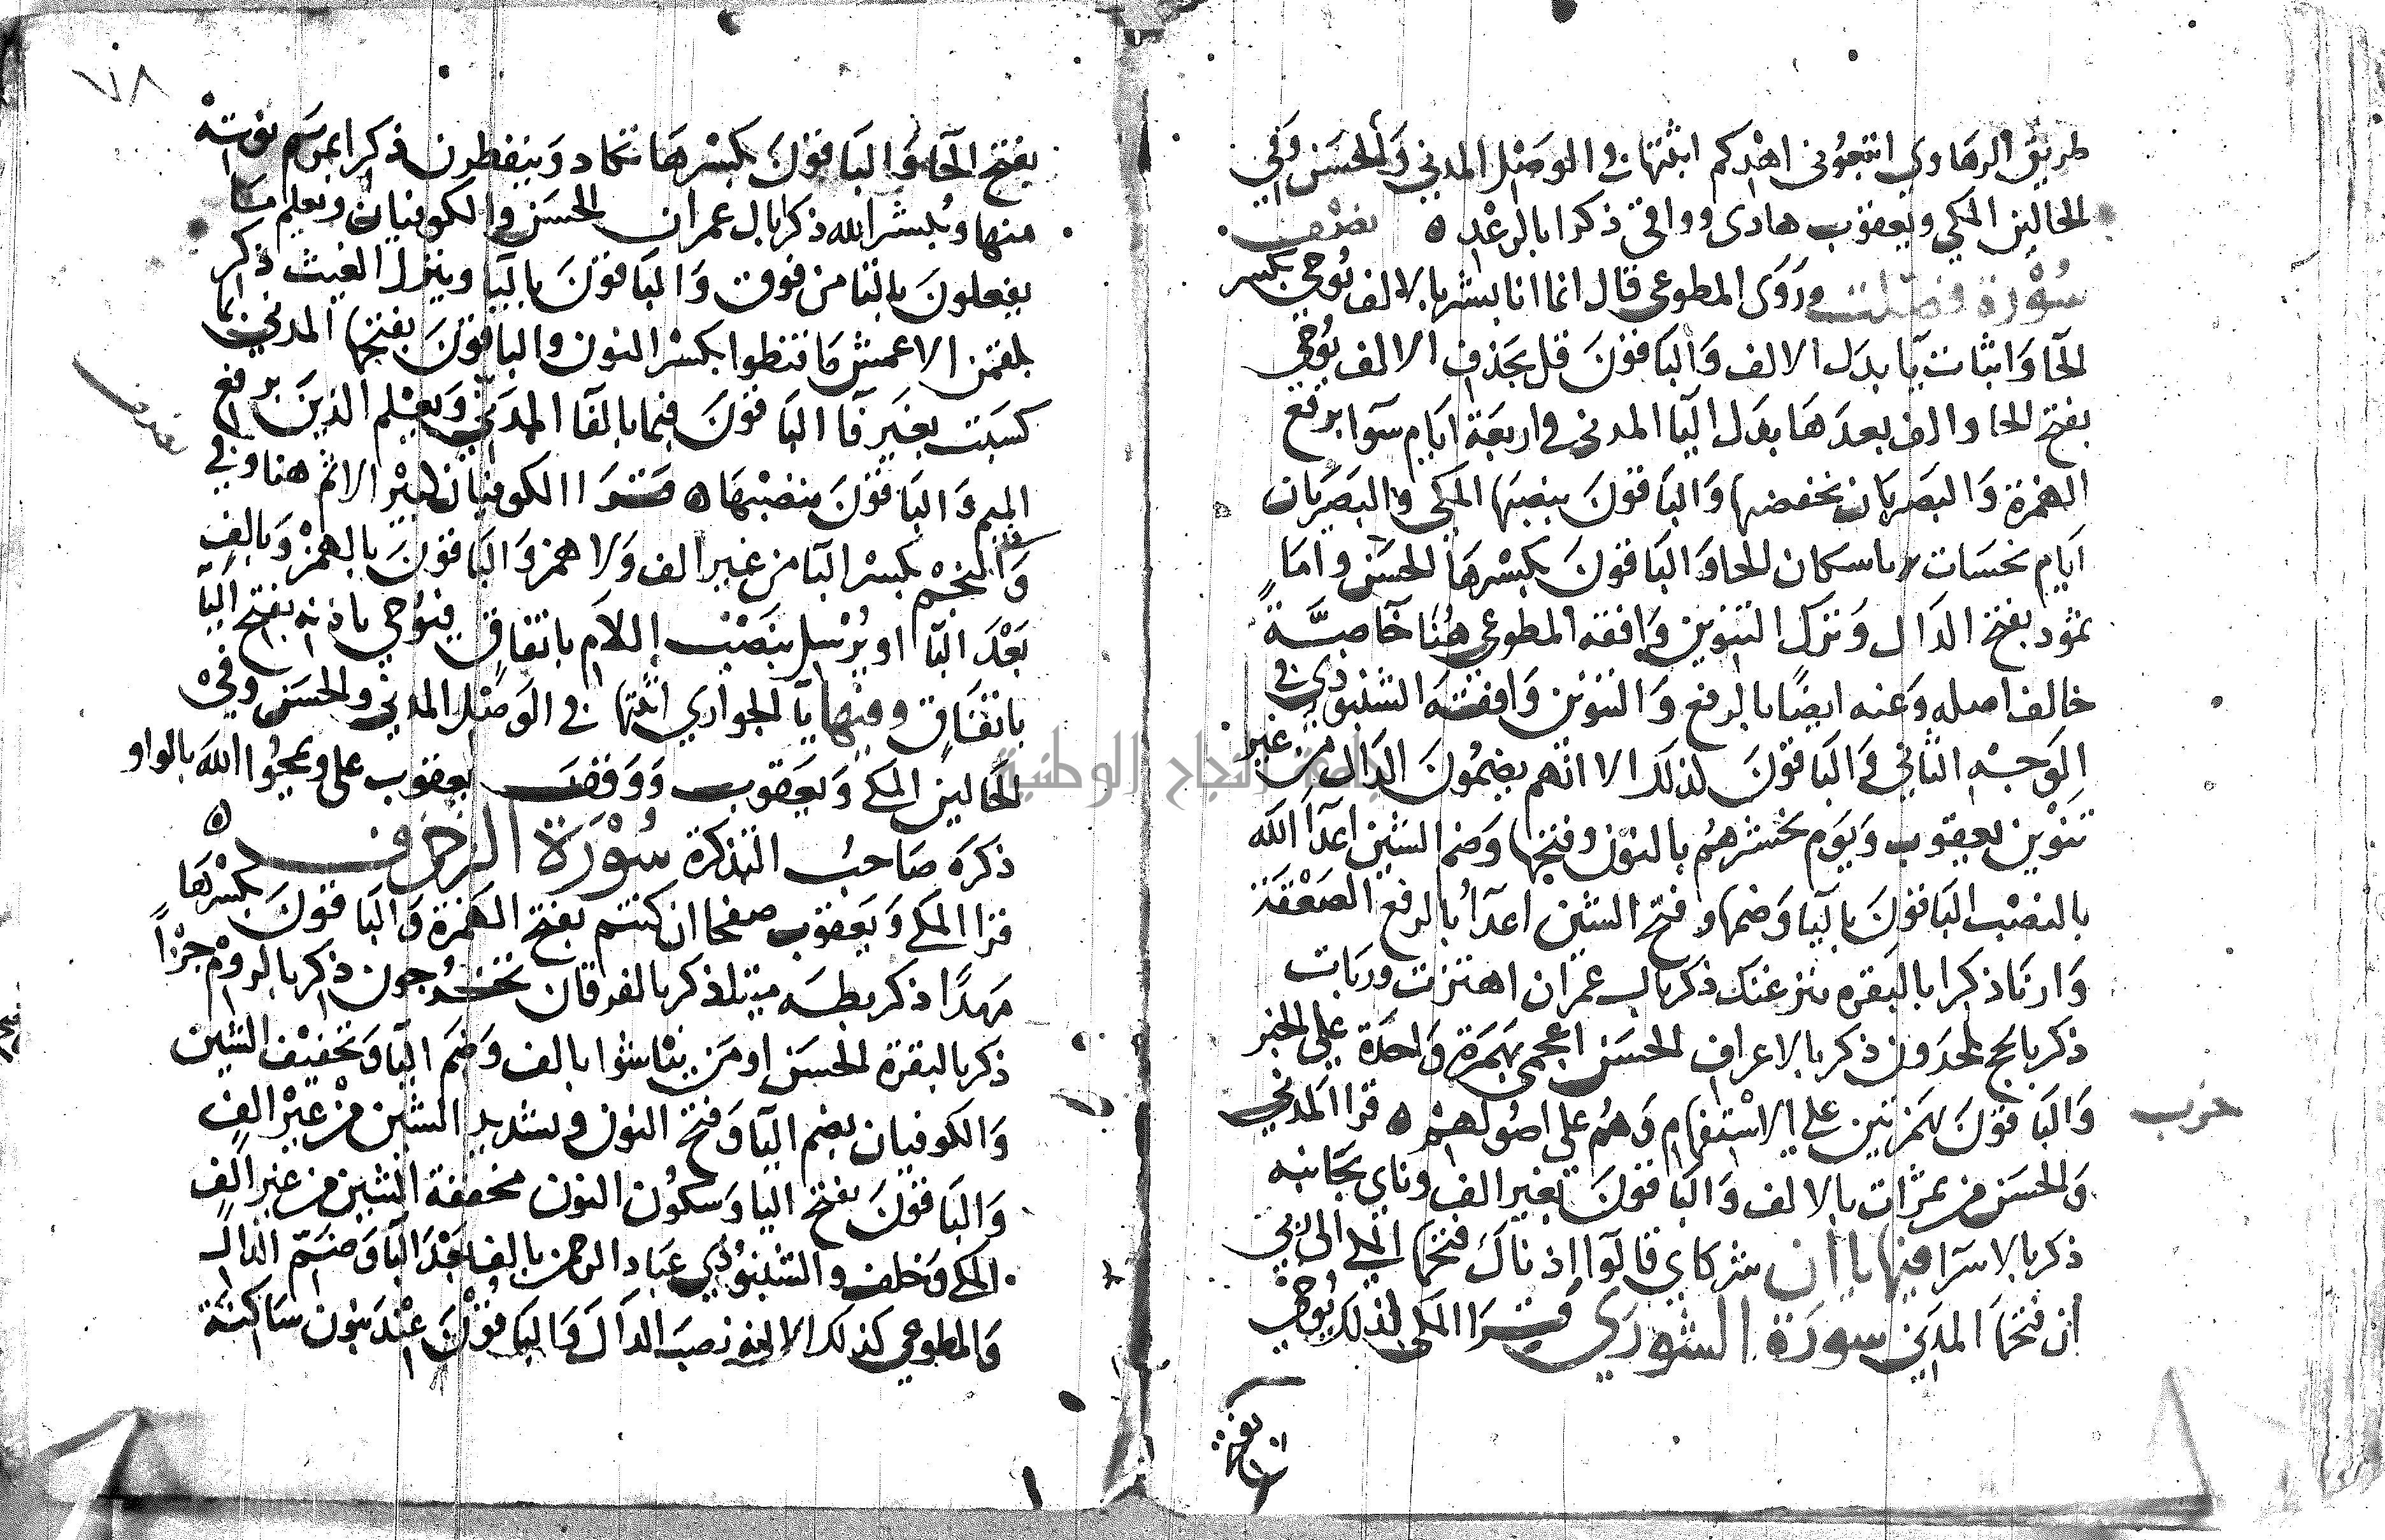 طريق الرهاوي اتبعوني اهدكم اثبتها في الوصل المدني والحسن وفي
الحالين المكي ويعقوب هادي وواقي ذكرا بالرعد ه نصف
سورة فصلت وروى المطوعي قال انما انا بشر بالالف يوحي بكسر
الحا واثبات يا بدل الالف والباقون قل بحذف الالف يوحي
بفتح الحا والف بعدها بدل اليا المدني في اربعة ايام سوآ برفع
الهمزة والبصريان بخفضها والباقون بنصبها المكي والبصريان
ايام نحسات باسكان الحا والباقون بكسرها الحسن واما
ثمود بفتح الدال وترك التنوين وافقه المطوعي هنا خاصة
خالف اصله وعنه ايضا بالرفع والتنوين وافقه الشنبوذي في
الوجه الثاني والباقون كذلك الا انهم يضمون الدال من غير
تنوين يعقوب ويوم نحشرهم بالنون وفتحها وضم الشين اعدآ الله
بالنصب الباقون باليا وضمها وفتح الشين اعدآ بالرفع الصعقة
وارنا ذكرا بالبقرة ينزغنك ذكر بال عمران اهتزت وربات
ذكر بالحج يلحدون ذكر بالاعراف الحسن اعجمي بهمزة واحدة على الخبر
والباقون بهمزتين على الاستفهام وهم على اصولهم ه قرا المدني
حزب
والحسن من ثمرات بالالف والباقون بغير الف وناي بجانبه
ذكر بالاسرا فيها يا ان شركاي قالوا اذناك فتحها المكي الى ربي
ان فتحها المدني سورة الشورى قرا المكي كذلك يوحي
بفتح
٧٨
بفتح الحا والباقون بكسرها تكاد وينفطرن ذكرا بمريم نوته
منها ويبشر الله ذكرا بال عمران الحسن والكوفيان ويعلم ما
يفعلون بالتا من فوق والباقون باليا وينزل الغيث ذكر
بلقمن الاعمش ما قنطوا بكسر النون والباقون بفتحها المدني بما
كسبت بغير فا الباقون فبما بالفا المدني ويعلم الذين برفع
الميم والباقون بنصبها ه قرا الكوفيان كبير الاثم هنا وفي
والنجم بكسر البا من غير الف ولا همز والباقون بالهمز وبالف
بعد البا او يرسل بنصب اللام باتفاق فيوحي باذنه بفتح اليا
باتفاق وفيها يا الجواري اثبتها في الوصل المدني والحسن وفي
الحالين المكي ويعقوب ووقف يعقوب على ويمحوا الله بالواو
ذكره صاحب التذكرة سورة الزخرف ه
قرا المكي ويعقوب صفحا ان كنتم بفتح الهمزة والباقون بكسرها
مهدا ذكر بطه ميتا ذكر بالفرقان تخرجون ذكر بالروم جزا
ذكر بالبقرة الحسن اومن يناشوا بالف وضم اليا وتخفيف الشين
والكوفيان بضم اليا وفتح النون وتشديد الشين من غير الف
والباقون بفتح اليا وسكون النون مخففة الشين من غير الف
المكي وخلف والشنبوذي عباد الرحمن بالف بعد البا وضم الدال
والمطوعي كذلك الا انه نصب الدال والباقون عند بنون ساكنة
جامعة النجاح الوطنية